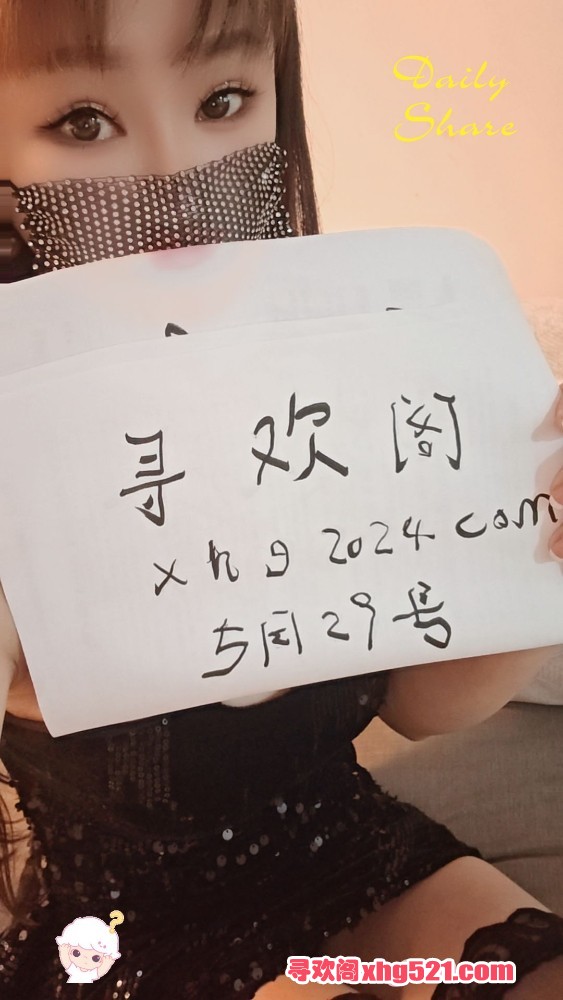 Daily
Share
寻欢阁
xhg2024com
5月29号
寻欢阁xhg521.com